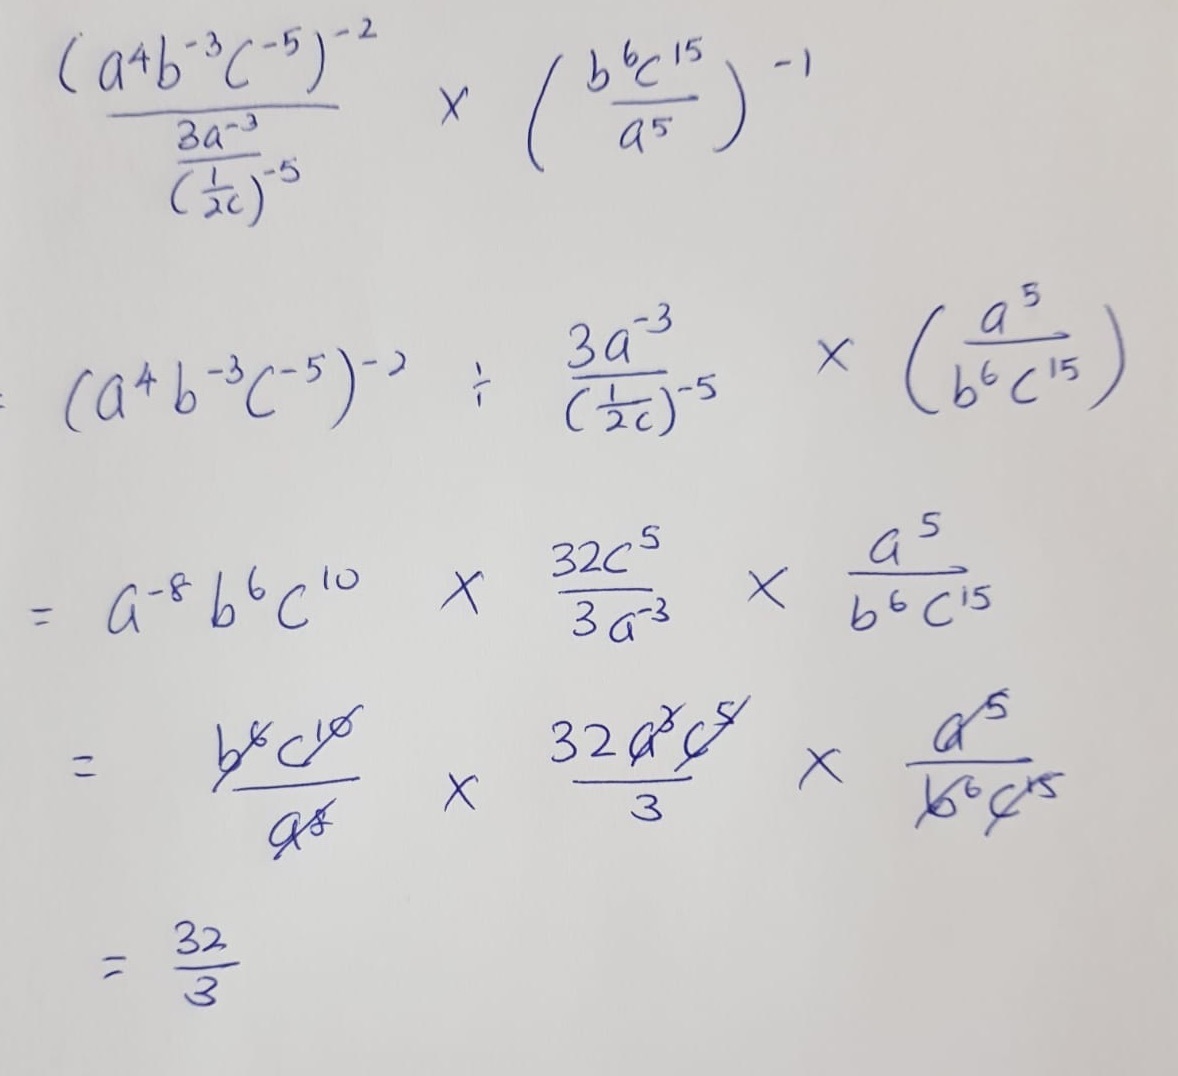 \frac{(a^4b^{-3}c^{-5})^{-2}}{\frac{3a^{-3}}{(\frac{1}{2c})^{-5}}} × (\frac{b^6c^{15}}{a^5})^{-1}
= (a^4b^{-3}c^{-5})^{-2} ÷ \frac{3a^{-3}}{(\frac{1}{2c})^{-5}} × (\frac{a^5}{b^6c^{15}})
= a^{-8}b^6c^{10} × \frac{32c^5}{3a^{-3}} × \frac{a^5}{b^6c^{15}}
= \frac{b^6c^{10}}{a^8} × \frac{32a^3c^5}{3} × \frac{a^5}{b^6c^{15}}
= \frac{32}{3}